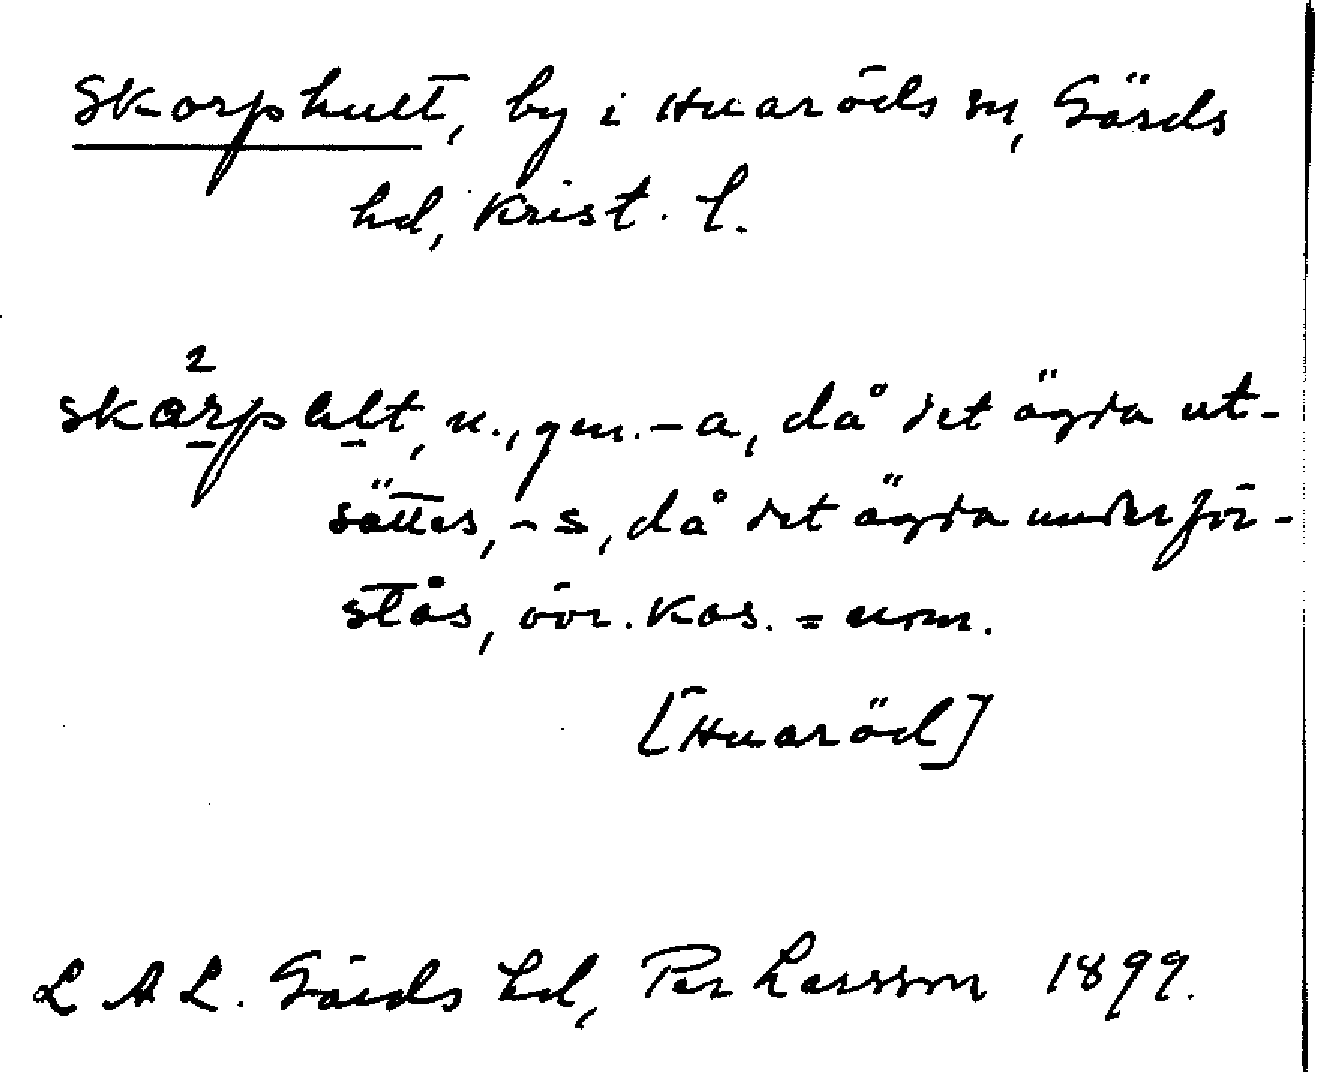 Skorphult, by i Huaröds sn, Gärds
hd, Krist. l.
2
skarpalt, n., gen. -a, då det ägda ut-
sättes, -s, då det ägda underför-
stås, övr. kas. = nom.
[Huaröd]
L A L. Gärds hd, Per Larsson 1899.